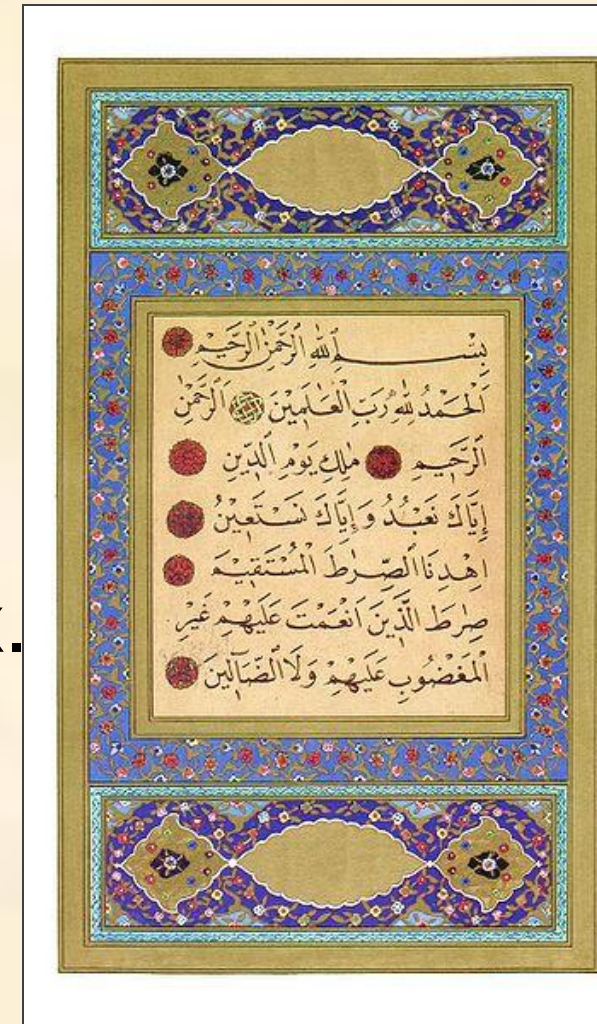 بِسْــــمِ ٱللّٰهِ ٱلرَّحْمٰنِ ٱلرَّحٖيمِ
اَلْحَمْدُ لِلّٰهِ رَبِّ الْعَالَمٖينَ اَلرَّحْمٰنِ
الرَّحٖيمِ مٰلِكِ يَوْمِ الدّٖينِ
اِيَّاكَ نَعْبُدُ وَ اِيَّاكَ نَسْتَعٖينُ
اِهْدِنَا الصِّرٰطَ الْمُسْتَقٖيمَ
صِرٰطَ الَّذٖينَ اَنْعَمْتَ عَلَيْهِمْ غَيْرِ
الْمَغْضُوبِ عَلَيْهِمْ وَلَا الضَّٓالّٖينَ